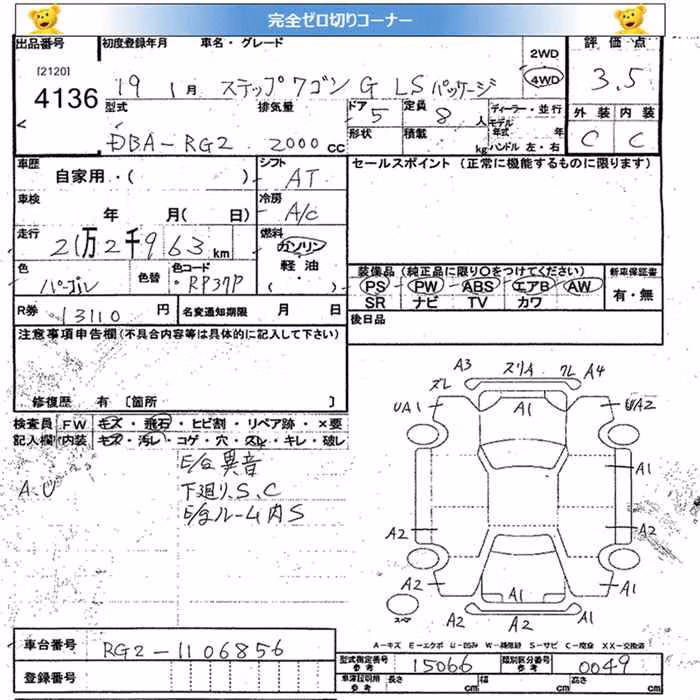 完全ゼロ切りコーナー
出品番号 初度登録年月 車名・グレード 2WD 評価点
[2120]
4136 19 1月 ステップワゴン G LSパッケージ 4WD 3.5
型式 排気量 ドア 5 定員 8人 ディーラー・並行 外装 内装
モデル年式
DBA-RG2 2000cc 形状 積載 kg ハンドル 左・右 C C
車歴 シフト セールスポイント (正常に機能するものに限ります)
自家用・( ) AT
車検 冷房
年 月(日) A/C
走行 燃料
21万2千963km ガソリン
色 色替 色コード 軽油 装備品(純正品に限り○をつけてください) 新車保証書
パープル RP37P ( ) PS PW ABS エアB AW 有・無
SR ナビ TV カワ
R券 13110円 名変通知期限 月 日 後日品
注意事項申告欄(不具合内容等は具体的に記入して下さい)
修復歴 有 [箇所 ]
検査員 FW キズ・飛石・ヒビ割・リペア跡・×要
記入欄 内装 キズ・汚レ・コゲ・穴・スレ・キレ・破レ
A.U E/G異音
下廻り、S、C
E/gルーム内S
A3 スリA クレ A4
ズレ
UA1 A1 UA2
A1
A2 A2
A2 A1 A1
スペア A2 A2 A2
A-キズ E-エクボ U-凹み W-補修跡 S-サビ C-腐食 XX-交換済
車台番号 RG2-1106856
型式指定番号 参考 15066 類別区分番号 参考 0049
登録番号 車庫証明用 参考 長さ cm 幅 cm 高さ cm